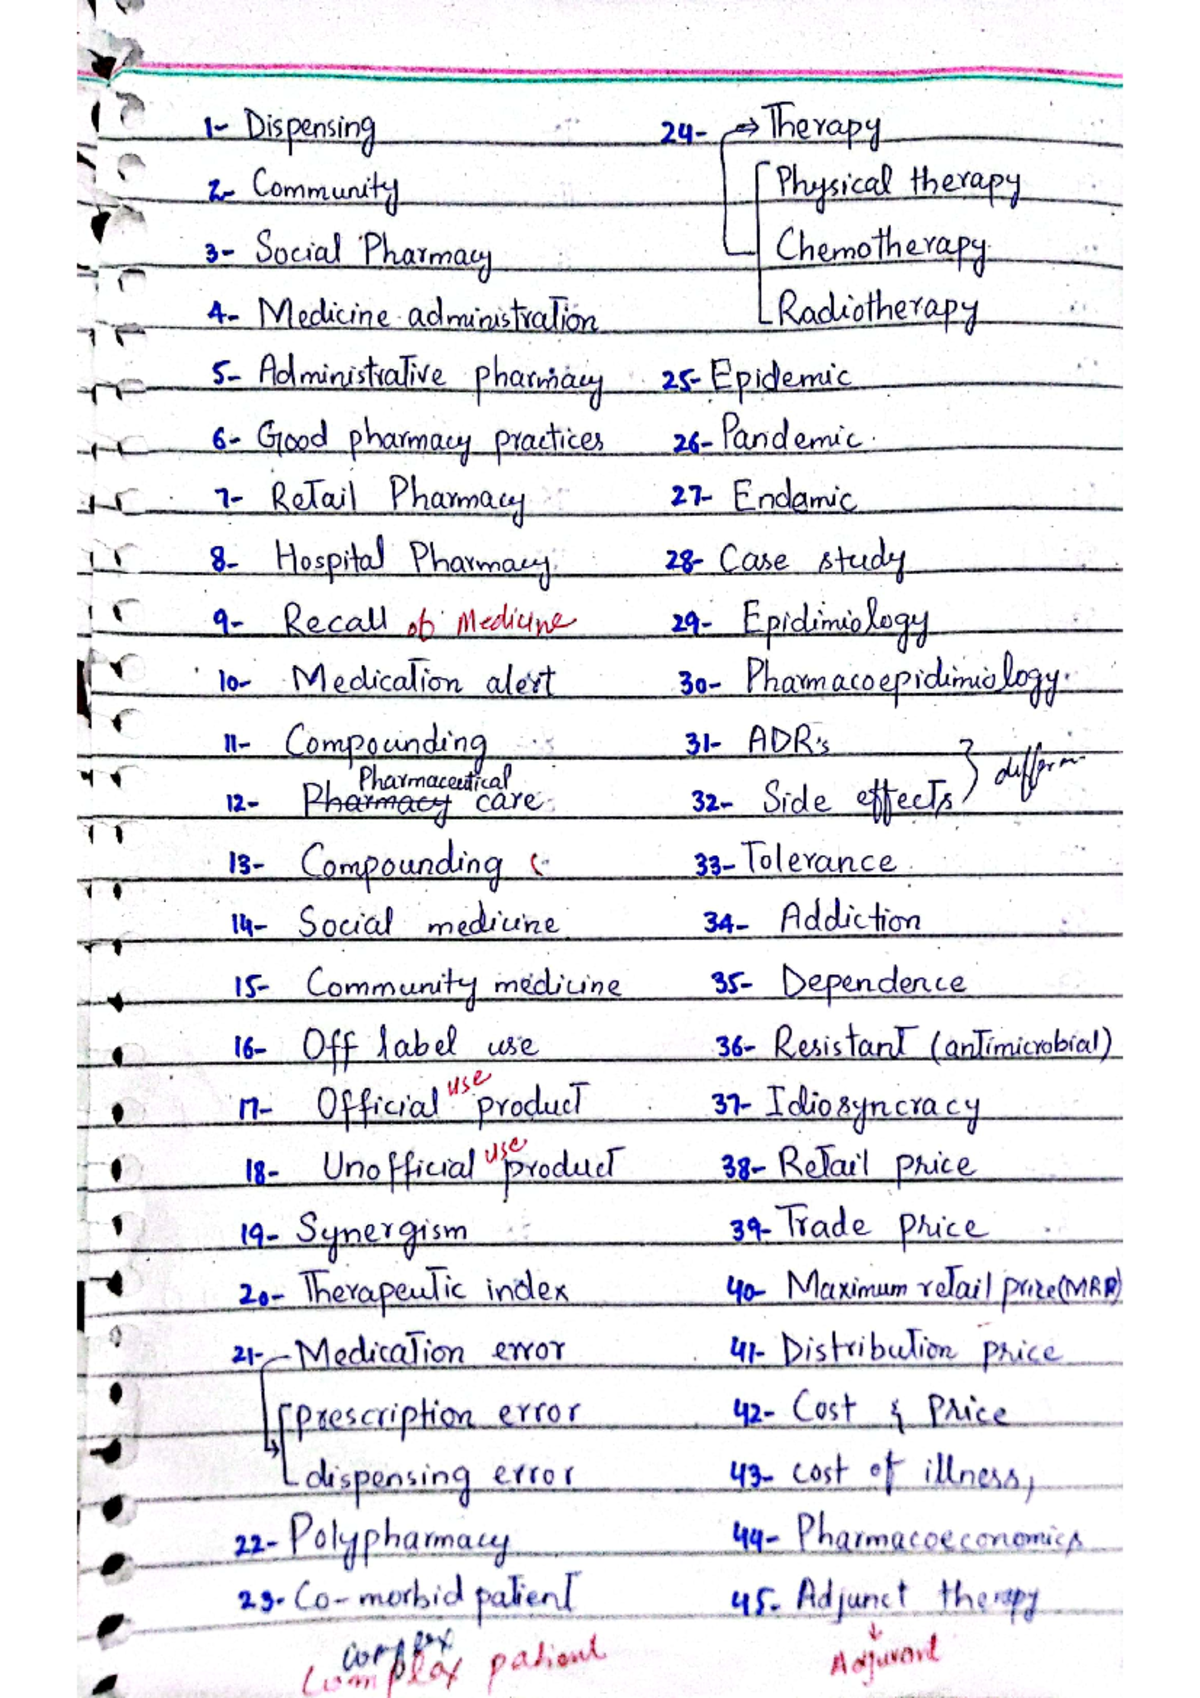 1- Dispensing
2- Community
3- Social Pharmacy
4- Medicine administration
5- Administrative pharmacy
6- Good pharmacy practices
7- Retail Pharmacy
8- Hospital Pharmacy
9- Recall of Medicine
10- Medication alert
11- Compounding
Pharmaceutical
12- Pharmacy care
13- Compounding
14- Social medicine
15- Community medicine
16- Off label use
use
17- Official product
use
18- Unofficial product
19- Synergism
20- Therapeutic index
21- Medication error
prescription error
dispensing error
22- Polypharmacy
23- Co-morbid patient
complex
Complex patient
24- ⇒ Therapy
Physical therapy
Chemotherapy
Radiotherapy
25- Epidemic
26- Pandemic.
27- Endamic
28- Case study
29- Epidimiology
30- Pharmacoepidimiology.
31- ADR's
32- Side effects
33- Tolerance
34- Addiction
35- Dependence
36- Resistant (antimicrobial)
37- Idiosyncracy
38- Retail price
39- Trade price
40- Maximum retail prize (MRP)
41- Distribution price
42- Cost & Price
43- cost of illness,
44- Pharmacoeconomics
45- Adjunct therapy
↓
Adjuvant